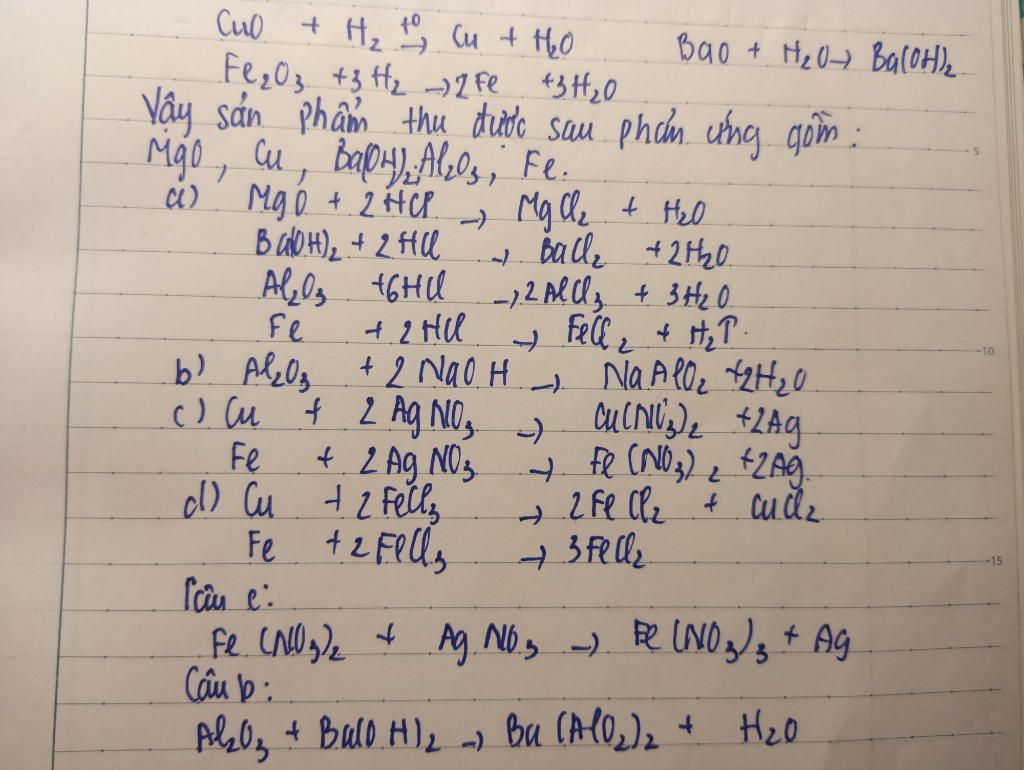 CuO + H₂ t⁰→ Cu + H₂O BaO + H₂O → Ba(OH)₂
Fe₂O₃ +3H₂ → 2Fe +3H₂O
Vậy sản phẩm thu được sau phản ứng gồm:
MgO, Cu, Ba(OH)₂, Al₂O₃, Fe.
a) MgO + 2HCl → MgCl₂ + H₂O
Ba(OH)₂ + 2HCl → BaCl₂ +2H₂O
Al₂O₃ +6HCl → 2AlCl₃ + 3H₂O
Fe + 2HCl → FeCl₂ + H₂↑.
b) Al₂O₃ + 2NaOH → NaAlO₂ +2H₂O
c) Cu + 2AgNO₃ → Cu(NO₃)₂ +2Ag
Fe + 2AgNO₃ → Fe(NO₃)₂ +2Ag
d) Cu +2FeCl₃ → 2FeCl₂ + CuCl₂
Fe +2FeCl₃ → 3FeCl₂
Câu c:
Fe(NO₃)₂ + AgNO₃ → Fe(NO₃)₃ + Ag
Câu b:
Al₂O₃ + Ba(OH)₂ → Ba(AlO₂)₂ + H₂O
5
10
15